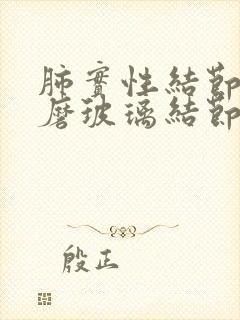 肺實性結節
磨玻璃結節
殷正